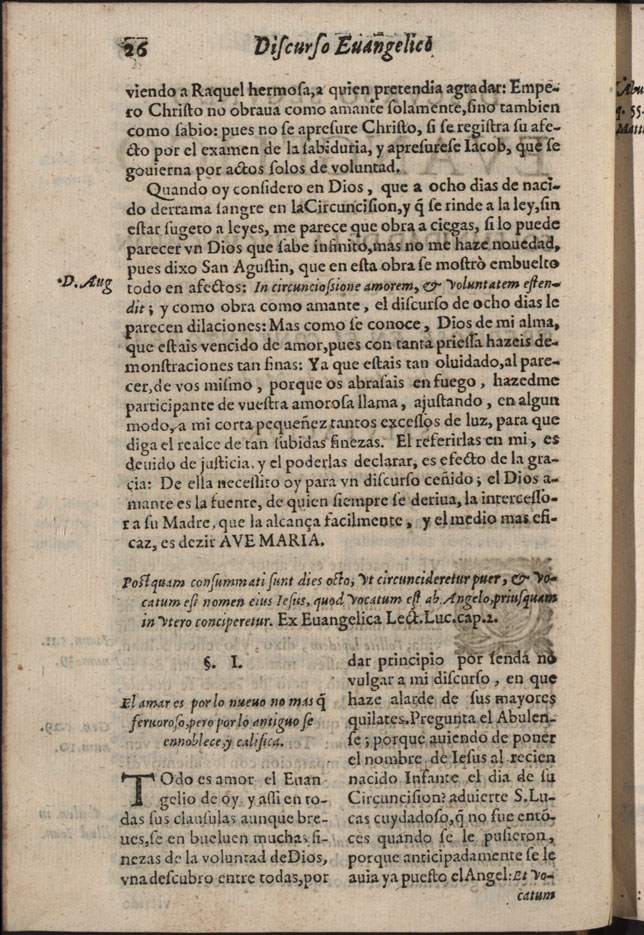 26 Discurso Euangelico
viendo a Raquel hermosa,a quien pretendia agradar: Empe-
ro Christo no obraua como amante solamente,sino tambien
como sabio: pues no se apresure Christo, si se registra su afe-
cto por el examen de la sabiduria, y apresurese Iacob, que se
gouierna por actos solos de voluntad.
Quando oy considero en Dios, que a ocho dias de naci-
do derrama sangre en laCircuncision,y q̃ se rinde a la ley,sin
estar sugeto a leyes, me parece que obra a ciegas, si lo puede
parecer vn Dios que sabe infinito,mas no me haze nouedad,
pues dixo San Agustin, que en esta obra se mostrò embuelto
D. Aug
todo en afectos: In circunciossione amorem, & voluntatem esten-
dit; y como obra como amante, el discurso de ocho dias le
parecen dilaciones: Mas como se conoce, Dios de mi alma,
que estais vencido de amor,pues con tanta priessa hazeis de-
monstraciones tan finas: Ya que estais tan oluidado,al pare-
cer,de vos mismo, porque os abrasais en fuego, hazedme
participante de vuestra amorosa llama, ajustando, en algun
modo,a mi corta pequeñez tantos excessos de luz, para que
diga el realce de tan subidas finezas. El referirlas en mi, es
deuido de justicia. y el poderlas declarar, es efecto de la gra-
cia: De ella necessito oy para vn discurso ceñido; el Dios a-
mante es la fuente, de quien siempre se deriua, la intercesso-
ra su Madre, que la alcança facilmente, y el medio mas efi-
caz, es dezir AVE MARIA.
Postquam consummati sunt dies octo, vt circuncideretur puer, & vo-
catum est nomen eius Iesus, quod vocatum est ab Angelo,priusquam
in vtero conciperetur. Ex Euangelica Lect.Luc.cap.2.
§. I.
El amar es por lo nueuo no mas q̃
feruoroso,pero por lo antiguo se
ennoblece,y califica.
TOdo es amor el Euan-
gelio de oy, y assi en to-
das sus clausulas aunque bre-
ues,se en bueluen muchas fi-
nezas de la voluntad deDios,
vna descubro entre todas,por
dar principio por senda no
vulgar a mi discurso, en que
haze alarde de sus mayores
quilates.Pregunta el Abulen-
se; porque auiendo de poner
el nombre de Iesus al recien
nacido Infante el dia de su
Circuncision? aduierte S.Lu-
cas cuydadoso,q̃ no fue entõ-
ces quando se le pusieron,
porque anticipadamente se le
auia ya puesto elAngel:Et vo-
catum
Abu
q. 55.